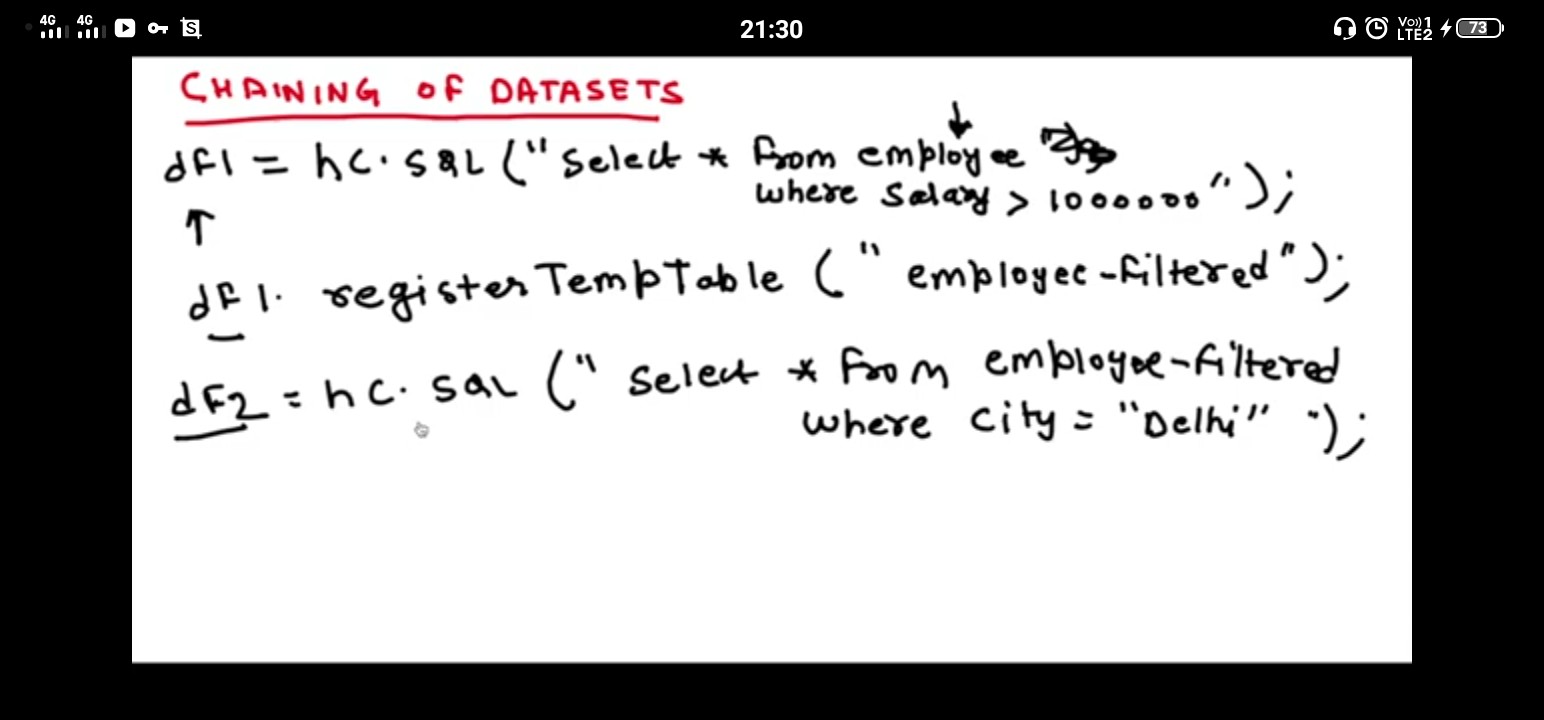 4G 4G 21:30 Vo)) 1 LTE2 73
CHAINING OF DATASETS
dF1 = hc.sqL ("Select * from employee
where Salary > 1000000");
dF1. registerTempTable ("employee-filtered");
dF2 = hc.sqL ("Select * from employee-filtered
where city = "Delhi" ");